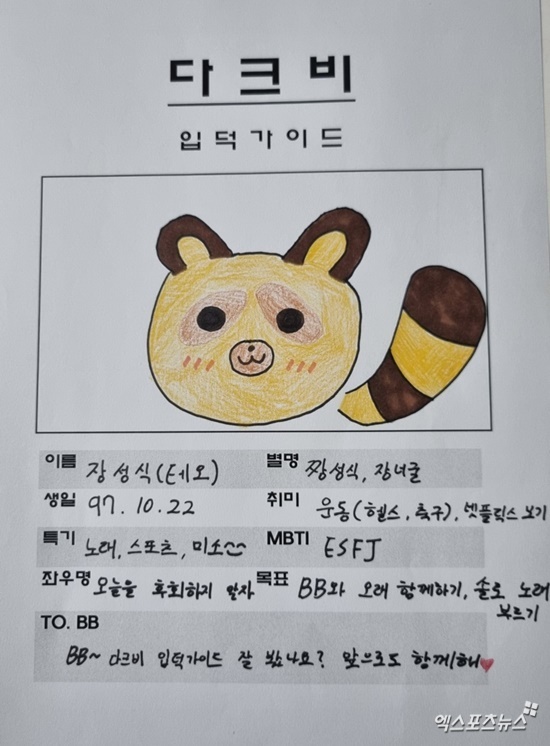 다크비
입덕가이드
이름 장성식(테오) 별명 짱성식, 장너굴
생일 97. 10. 22 취미 운동(헬스, 축구), 넷플릭스 보기
특기 노래, 스포츠, 미소 MBTI ESFJ
좌우명 오늘을 후회하지 말자 목표 BB와 오래 함께하기, 솔로 노래
부르기
TO. BB
BB~ 다크비 입덕가이드 잘 봤나요? 앞으로도 함께해♥
엑스포츠뉴스